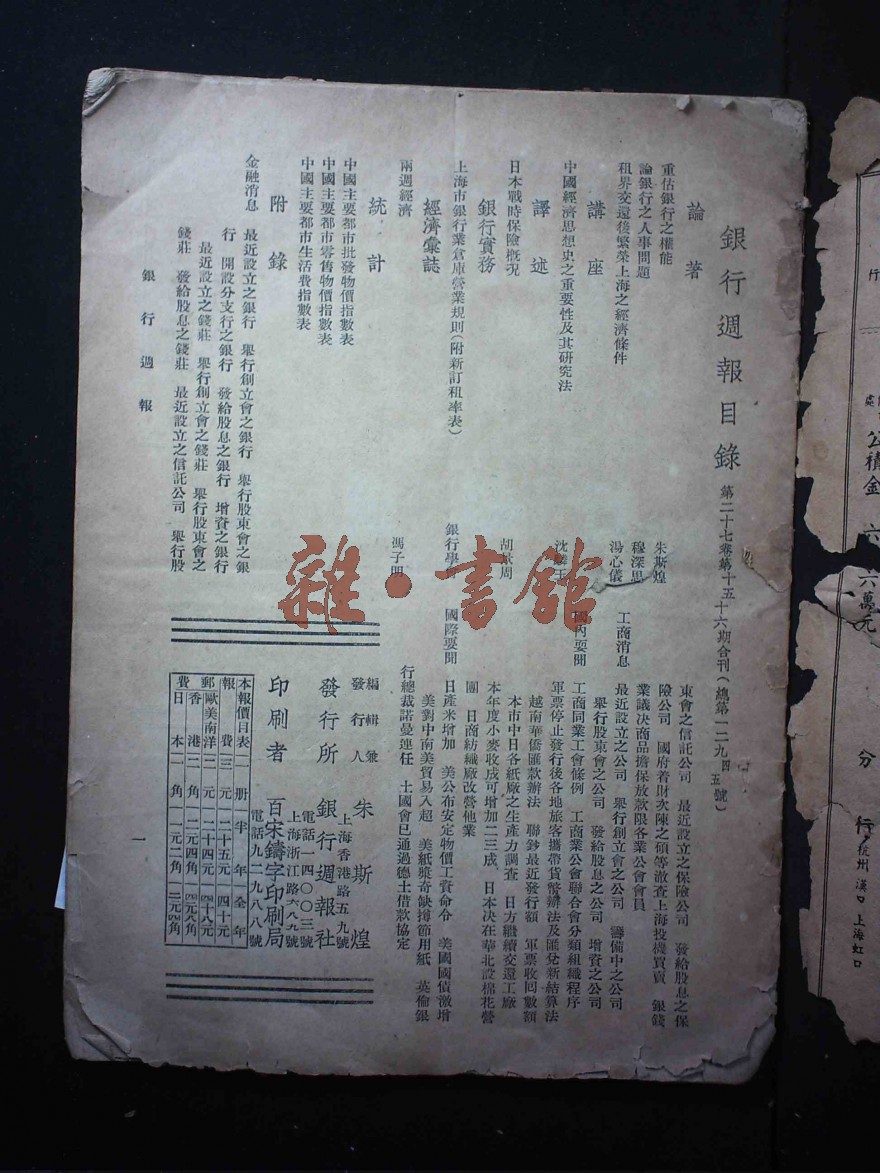 銀行週報目錄 第二十七卷第十五十六期合刊(總第一二九四五號)
論著
重估銀行之權能 朱斯煌
論銀行之人事問題 穆深思
租界交還後繁榮上海之經濟條件 湯心儀
講座
中國經濟思想史之重要性及其研究法 沈麟玉
譯述
日本戰時保險概況
銀行實務
上海市銀行業倉庫營業規則(附新訂租率表) 銀行學會
經濟彙誌
兩週經濟 馮子明
統計
中國主要都市批發物價指數表
中國主要都市零售物價指數表
中國主要都市生活費指數表
附錄
金融消息 最近設立之銀行 舉行創立會之銀行 舉行股東會之銀
行 開設分支行之銀行 發給股息之銀行 增資之銀行
最近設立之錢莊 舉行創立會之錢莊 舉行股東會之
錢莊 發給股息之錢莊 最近設立之信託公司 舉行股
東會之信託公司 最近設立之保險公司 發給股息之保
險公司 國府着財次陳之碩等澈查上海投機買賣 銀錢
業議決商品擔保放款限各業公會會員
工商消息 最近設立之公司 舉行創立會之公司 籌備中之公司
舉行股東會之公司 發給股息之公司 增資之公司
工商同業工會條例 工商業公會聯合會分類組織程序
國內要聞 軍票停止發行後各地旅客攜帶貨幣辦法及匯兌新結算法
越南華僑匯款辦法 聯鈔最近發行額 軍票收回數額
本市中日各紙廠之生產力調查 日方繼續交還工廠
本年度小麥收成可增加二三成 日本決在華北設棉花營
團 日商紡織廠改營他業
國際要聞 日產米增加 美公布安定物價工資命令 美國國債激增
美對中南美貿易入超 美紙漿奇缺撙節用紙 英倫銀
行總裁諾曼連任 土國會已通過德土借款協定
銀行週報
編輯兼發行人 朱斯煌
發行所 銀行週報社
上海香港路五九號
電話一四〇〇三號
印刷者 百宋鑄字印刷局
上海浙江路六八九號
電話九二九八八號
本報價目表 一册 半年 全年
報費 三元 二十五元 四十元
郵費 歐美南洋 二元 二十四元 四十八元
香港 二角 二元四角 四元八角
日本 一角 一元二角 二元四角
一
雜·書館
行
公積金
六萬元
分行
杭州 漢口 上海虹口